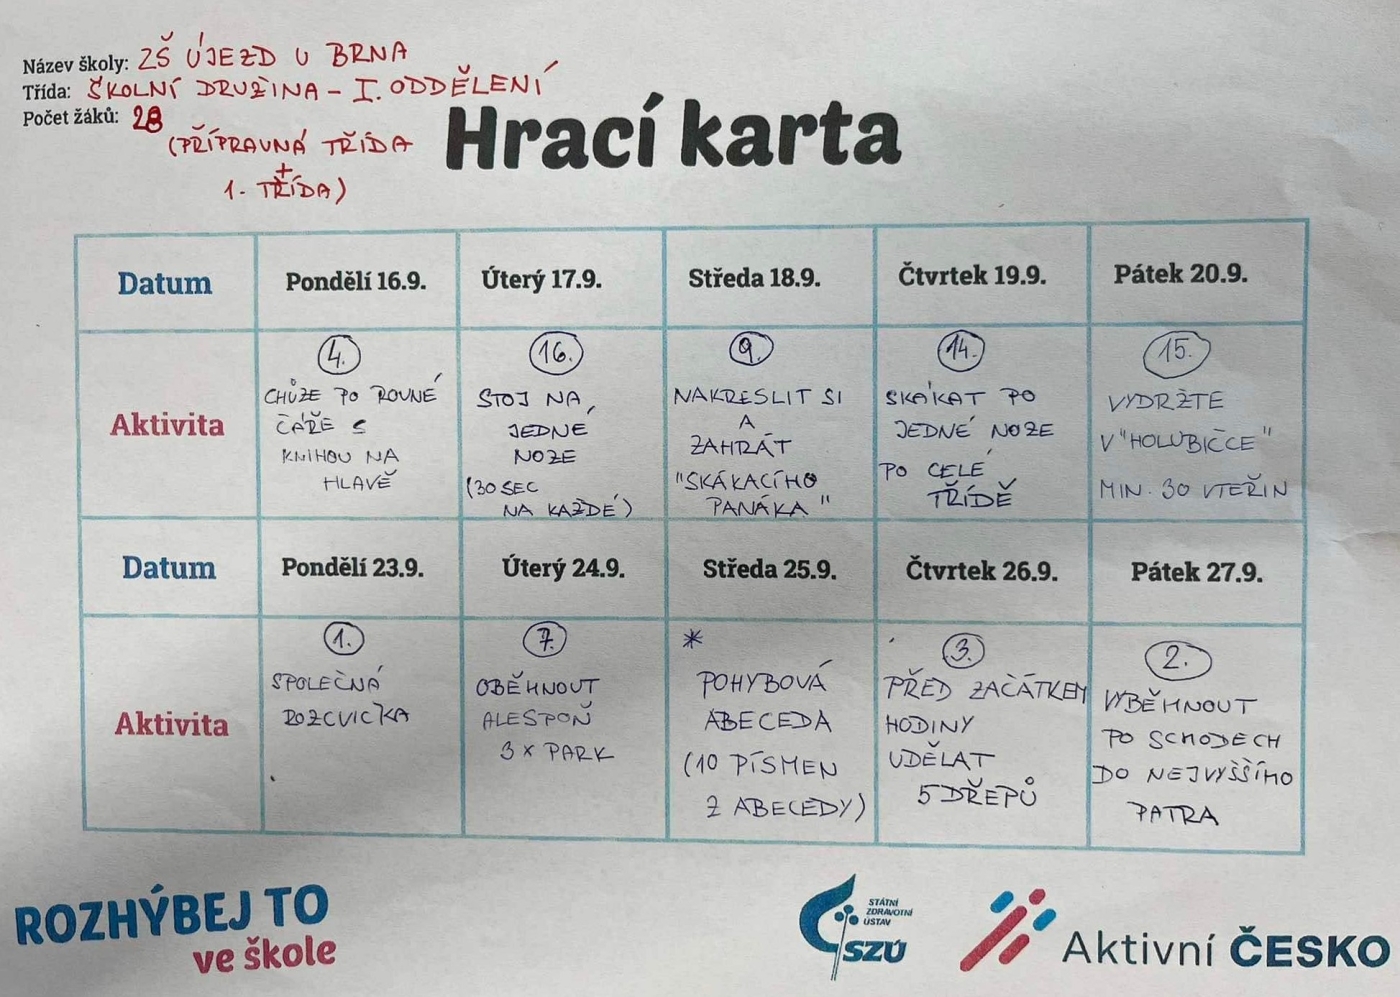 Název školy: ZŠ ÚJEZD U BRNA
Třída: ŠKOLNÍ DRUŽINA - I. ODDĚLENÍ
Počet žáků: 28
(PŘÍPRAVNÁ TŘÍDA
+
1. TŘÍDA)
Hrací karta
Datum
Pondělí 16.9.
Úterý 17.9.
Středa 18.9.
Čtvrtek 19.9.
Pátek 20.9.
Aktivita
4.
CHŮZE PO ROVNÉ
ČÁŘE S
KNIHOU NA
HLAVĚ
16.
STOJ NA
JEDNÉ
NOZE
(30 SEC
NA KAŽDÉ)
9.
NAKRESLIT SI
A
ZAHRÁT
"SKÁKACÍHO
PANÁKA"
14.
SKÁKAT PO
JEDNÉ NOZE
PO CELÉ
TŘÍDĚ
15.
VYDRŽTE
V "HOLUBIČCE"
MIN. 30 VTEŘIN
Datum
Pondělí 23.9.
Úterý 24.9.
Středa 25.9.
Čtvrtek 26.9.
Pátek 27.9.
Aktivita
1.
SPOLEČNÁ
ROZCVIČKA
7.
OBĚHNOUT
ALESPOŇ
3 x PARK
*
POHYBOVÁ
ABECEDA
(10 PÍSMEN
Z ABECEDY)
3.
PŘED ZAČÁTKEM
HODINY
UDĚLAT
5 DŘEPŮ
2.
VYBĚHNOUT
PO SCHODECH
DO NEJVYŠŠÍHO
PATRA
ROZHÝBEJ TO
ve škole
STÁTNÍ
ZDRAVOTNÍ
ÚSTAV
SZÚ
Aktivní ČESKO